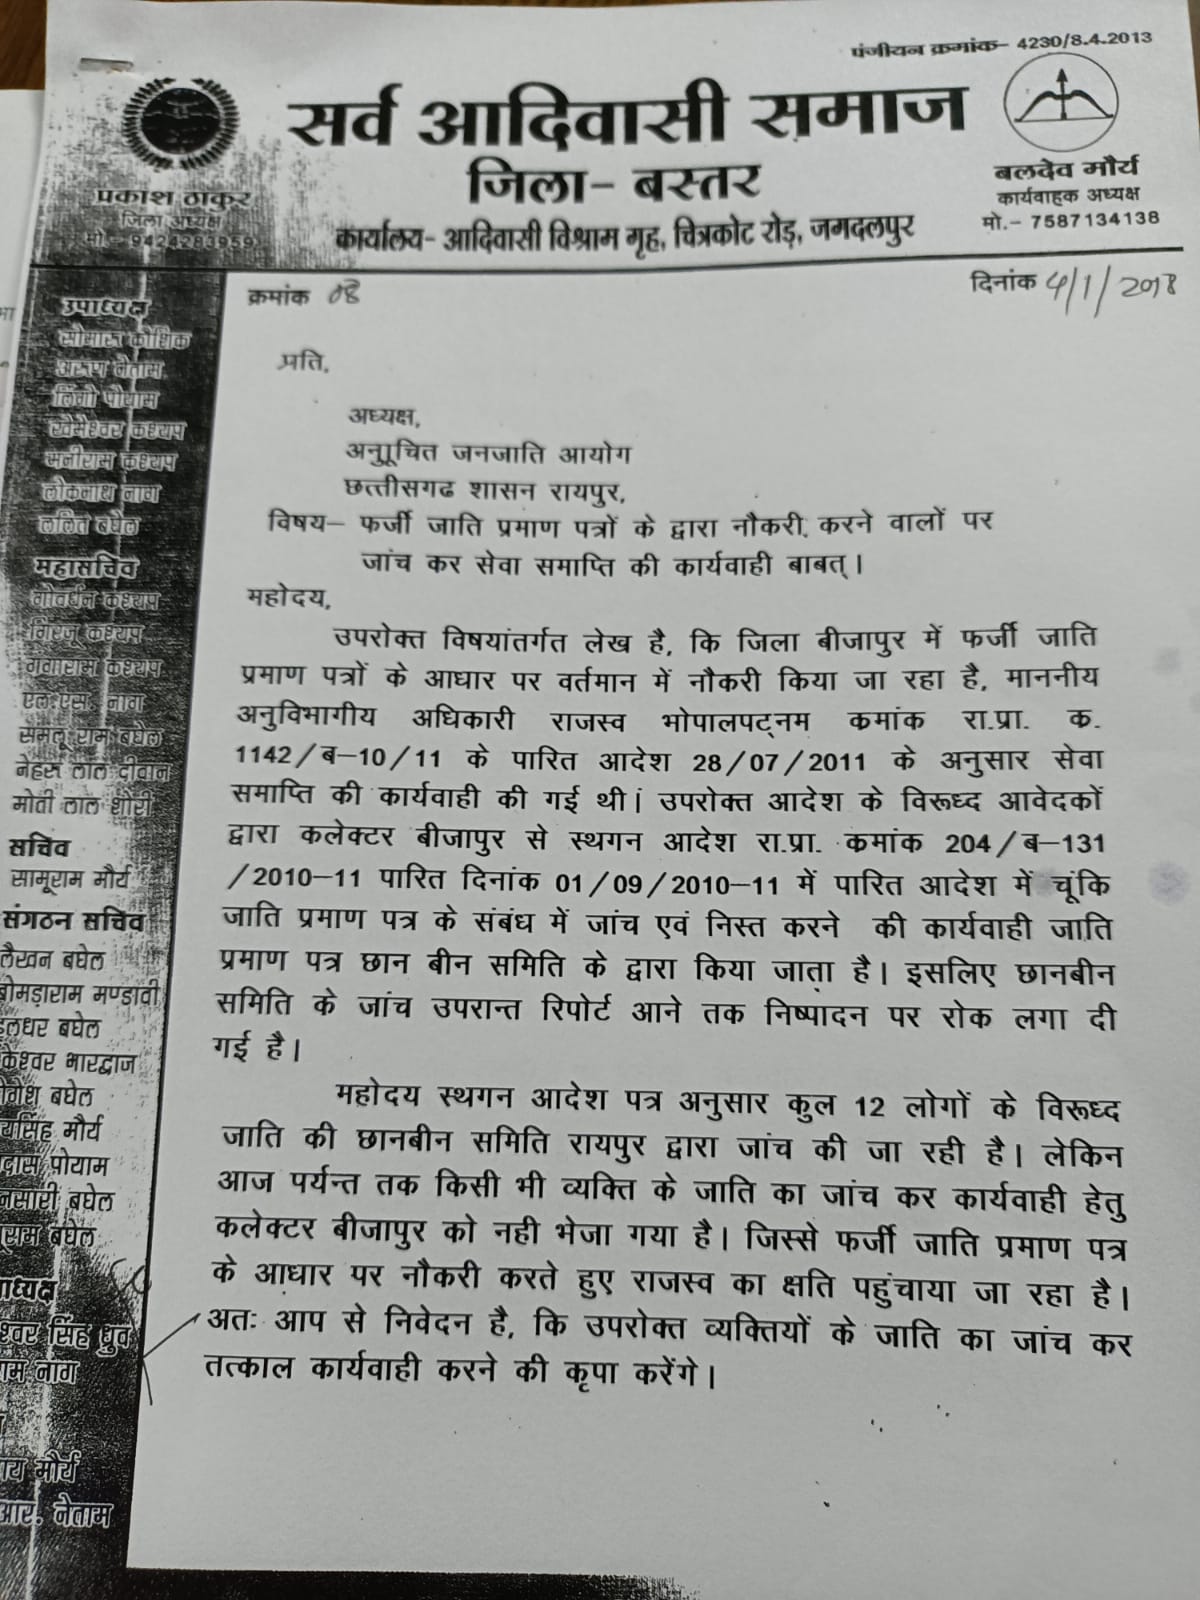 पंजीयन क्रमांक– 4230/8.4.2013
सर्व आदिवासी समाज
जिला– बस्तर
कार्यालय– आदिवासी विश्राम गृह, चित्रकोट रोड़, जगदलपुर
प्रकाश ठाकुर
जिला अध्यक्ष
मो.– 9424283959
बलदेव मौर्य
कार्यवाहक अध्यक्ष
मो.– 7587134138
क्रमांक 08
दिनांक 4/1/2018
उपाध्यक्ष
सोमारू कौशिक
अरुण नेताम
लिंगो पोयाम
खेमेश्वर कश्यप
मनीराम कश्यप
लोकनाथ नाग
ललित बघेल
महासचिव
गोवर्धन कश्यप
गिरजू कश्यप
गंगाराम कश्यप
एल.एस. नाग
समलू राम बघेल
नेहरू लाल दीवान
मोती लाल शोरी
सचिव
सामूराम मौर्य
संगठन सचिव
लैखन बघेल
मण्डावी
बघेल
भारद्वाज
बघेल
मौर्य
पोयाम
बघेल
बघेल
सिंह ध्रुव
नाग
मौर्य
आर. नेताम
प्रति,
अध्यक्ष,
अनुाूचित जनजाति आयोग
छत्तीसगढ शासन रायपुर,
विषय– फर्जी जाति प्रमाण पत्रों के द्वारा नौकरी, करने वालों पर
जांच कर सेवा समाप्ति की कार्यवाही बाबत्।
महोदय,
उपरोक्त विषयांतर्गत लेख है, कि जिला बीजापुर में फर्जी जाति
प्रमाण पत्रों के आधार पर वर्तमान में नौकरी किया जा रहा है, माननीय
अनुविभागीय अधिकारी राजस्व भोपालपट्नम कमांक रा.प्रा. क.
1142/ब–10/11 के पारित आदेश 28/07/2011 के अनुसार सेवा
समाप्ति की कार्यवाही की गई थी। उपरोक्त आदेश के विरूध्द आवेदकों
द्वारा कलेक्टर बीजापुर से स्थगन आदेश रा.प्रा. कमांक 204/ब–131
/2010–11 पारित दिनांक 01/09/2010–11 में पारित आदेश में चूंकि
जाति प्रमाण पत्र के संबंध में जांच एवं निस्त करने की कार्यवाही जाति
प्रमाण पत्र छान बीन समिति के द्वारा किया जाता है। इसलिए छानबीन
समिति के जांच उपरान्त रिपोर्ट आने तक निष्पादन पर रोक लगा दी
गई है।
महोदय स्थगन आदेश पत्र अनुसार कुल 12 लोगों के विरूध्द
जाति की छानबीन समिति रायपुर द्वारा जांच की जा रही है। लेकिन
आज पर्यन्त तक किसी भी व्यक्ति के जाति का जांच कर कार्यवाही हेतु
कलेक्टर बीजापुर को नही भेजा गया है। जिस्से फर्जी जाति प्रमाण पत्र
के आधार पर नौकरी करते हुए राजस्व का क्षति पहुंचाया जा रहा है।
अतः आप से निवेदन है, कि उपरोक्त व्यक्तियों के जाति का जांच कर
तत्काल कार्यवाही करने की कृपा करेंगे।